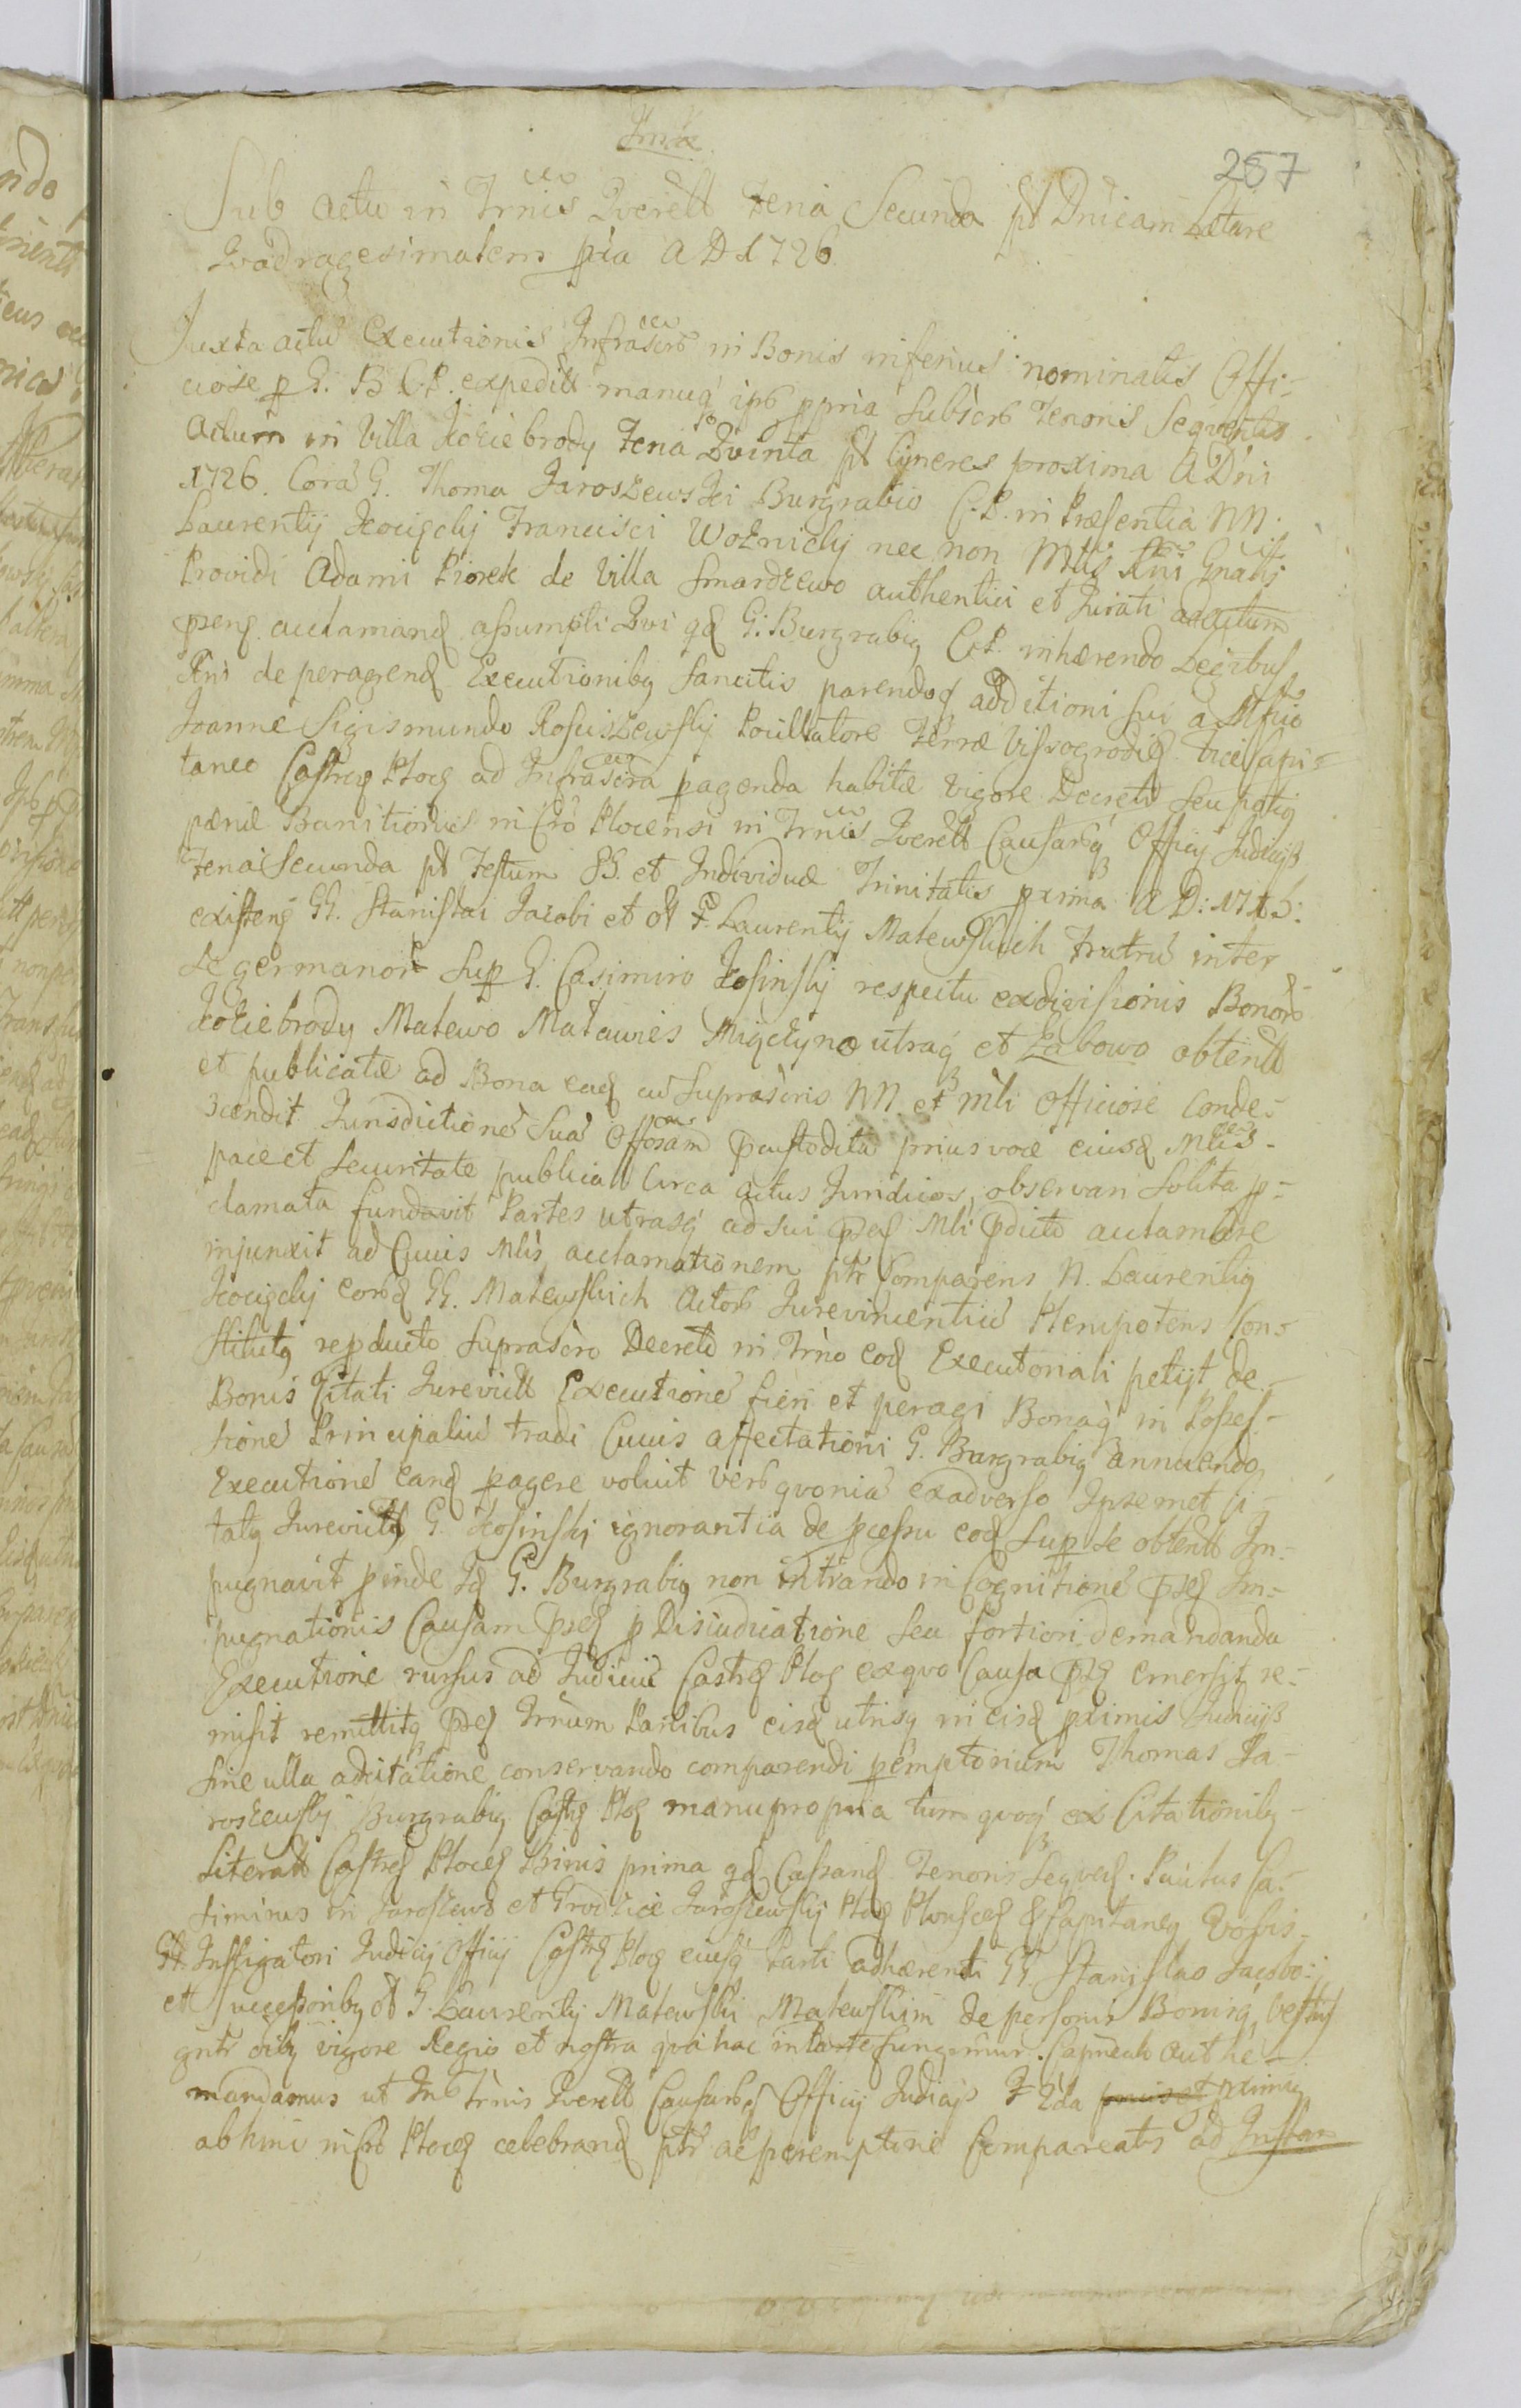 257
Sub actu in Trnis Qverell Feria Secunda pt Dnicam Lætare
Qvadragesimalem pxa A D 1726
Juxta actu Executionis Infrascr in Bonis inferius nominatis Offi-
ciose p G. B. C. P. expedit manuq ips ppria subscr Tenoris Seqventis
Actum in Villa Koziebrody Feria Qvinta pt Cyneres proxima A Dni
1726. Cora G. Thoma Jaroszewski Burgrabio C. P. in Præsentia NN.
Laurentij Kocięcki Francisci Woznicki nec non Mtlis Rni Gnalis
Providi Adami Piorek de Villa Smardzewo authentici et Jurati ad actum
psens acclamand assumpti Qvi qd G. Burgrabig C. P. inhærendo Legibus
Rni de peragend Executionibg sancitis parendoq additioni sui a Mfico
Joanne Sigismundo Rosciszewsky Poccillatore Terræ Vissogrodien Vice Capi-
taneo Castren Ploc ad Infrascra pagenda habitæ vigore Decreti seu potig
pænæ Banitionis in Cro Plocensi in Trnis Qverell Causarq Officij Judicijs
Feria Secunda pt Festum SS. et Individuæ Trinitatis pxima A D: 1715:
existens GG. Stanislai Jacobi et ol P. Laurentij Matewskich Fratru inter
se germanor Sup G. Casimiro Kosinsky respectu exdivisionis Bonor
Koziebrody Matewo Mataures Miączyno utraq et Zabowo obtent
et publicatæ ad Bona ead cu suprascris NN. et Mli Officiose conde-
scendit Jurisdictione sua Offosam pcustodita prius voce eiusd Mlis
pace et securitate publica circa actus Juridicos, observari solita p-
clamata fundavit Partes utrasq ad sui psens Mli pdicto acclamare
injunxit ad Cuius Mlis acclamationem ptr Comparens N. Laurentig
Kocięcki eord GG. Matewskich Actor Jurevincentiu Plenipotens Con-
stitutg repducto suprascro Decreto in Trno eod Executoriali petijt de
Bonis Citati Jurevicti Executione fieri et peragi Bonaq in Posses-
sione Principaliu tradi Cuius affectationi G. Burgrabig annuendo
Executione eand pagere voluit Ver qvonia exadverso Ipsemet Ci-
tatg Jurevictg G. Kosinski ignorantia de pcessu eod sup se obtent Im-
pugnavit pinde Id G. Burgrabig non intrando in Cognitione psen Im-
pugnationis Causam psen p Disiudicatione seu fortiori demandanda
Executione rursus ad Judiciu Castren Ploc exqvo Causa psen emersit re-
misit remittitq psen Trnum Partibus eisd utrisq in eisd pximis Judicijs
sine ulla adcitatione conservando comparendi pemptorium Thomas Ja-
roszewsky Burgrabig Castren Ploc manu propria tum qvoq ex Citationibg
Literatt Castren Plocen Binis prima qd Cassand Tenoris Seqven. Paulus Ca-
simirus in Jaroszewo et Grodzice Jaroszewsky Ploc Plonscen Capitaneg Vobis
GG Instigatori Judicij Officij Castren Ploc eiusq Parti adhærenti GG. Stanislao Jacobo
et Successoribg ol G. Laurentij Matewski Matewskim de personis Bonisq vestris
gntr oibg vigore Regio et nostra qva hac in Parte fungimur. Capneali authe-
mandamus ut In Trnis Qverell Causarq Officij Judicijs F 2da pximis
ab hinc in Cro Plocen celebrand ptr ac peremptorie Compareatis ad Instan